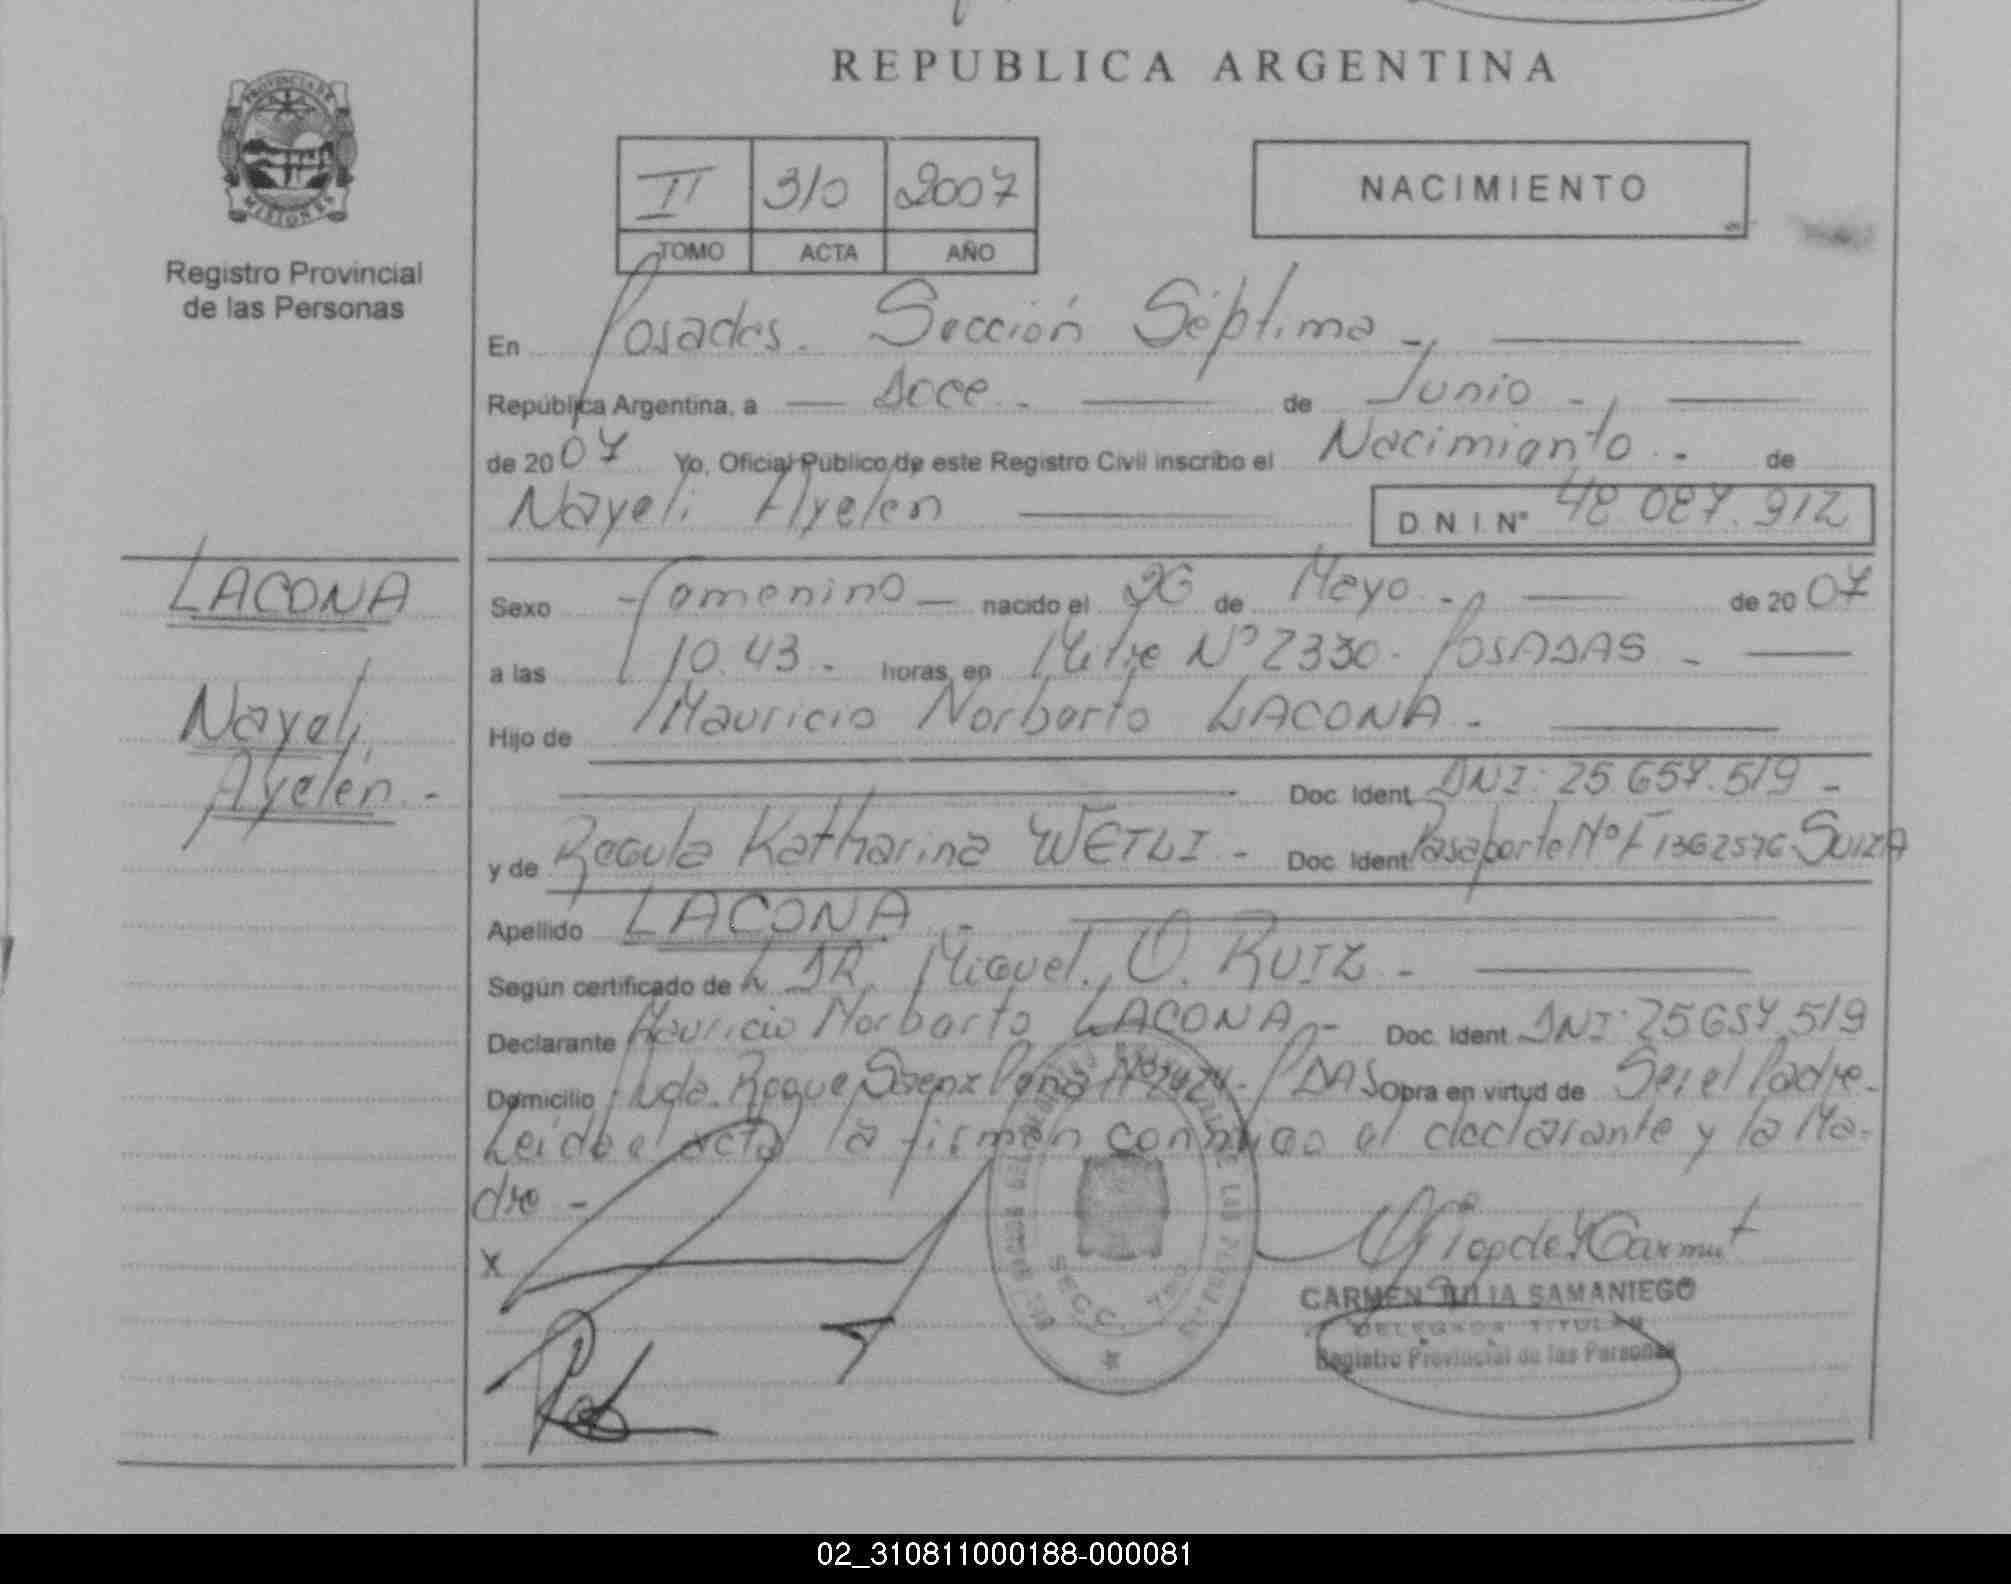 REPUBLICA ARGENTINA
PROVINCIA DE
MISIONES
Registro Provincial
de las Personas
II 310 2007
TOMO ACTA AÑO
NACIMIENTO
En Posadas. Sección Séptima -
República Argentina, a Doce - de Junio -
de 2007 Yo, Oficial Público de este Registro Civil inscribo el Nacimiento - de
Nayeli Ayelen D.N.I.Nº 48.087.912
LACONA
Nayeli
Ayelén -
Sexo Femenino nacido el 26 de Mayo - de 2007
a las 10.43 - horas, en Mitre Nº 2330 - POSADAS -
Hijo de Mauricio Norberto LACONA -
Doc. Ident. DNI: 25.657.519 -
y de Regula Katharina WETLI - Doc. Ident. Pasaporte Nº F1362576 - SUIZA
Apellido LACONA -
Según certificado de DR. Miguel O. RUIZ -
Declarante Mauricio Norberto LACONA - Doc. Ident. DNI: 25.657.519
Domicilio Avda. Roque Saenz Peña PDAS Obra en virtud de Ser el Padre -
Leída el acta la firman conmigo el declarante y la Ma-
dre -
X
SECC. 7
CARMEN JULIA SAMANIEGO
DELEGADA TITULAR
Registro Provincial de las Personas
02_310811000188-000081